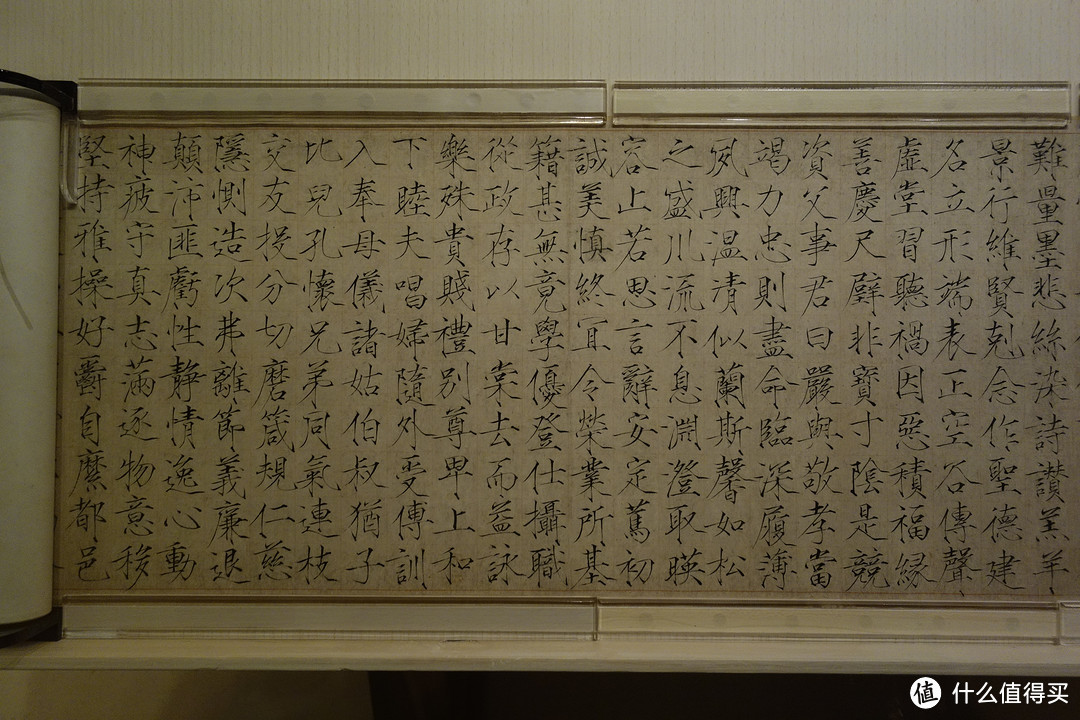 難量墨悲絲染詩讃羔羊
景行維賢剋念作聖德建
名立形端表正空谷傳聲
虛堂習聽禍因惡積福緣
善慶尺璧非寶寸陰是競
資父事君曰嚴與敬孝當
竭力忠則盡命臨深履薄
夙興温清似蘭斯馨如松
之盛川流不息淵澄取暎
容止若思言辭安定篤初
誠美慎終宜令榮業所基
籍甚無竟學優登仕攝職
從政存以甘棠去而益詠
樂殊貴賤禮別尊卑上和
下睦夫唱婦隨外受傅訓
入奉母儀諸姑伯叔猶子
比兒孔懷兄弟同氣連枝
交友投分切磨箴規仁慈
隱惻造次弗離節義廉退
顛沛匪虧性静情逸心動
神疲守真志滿逐物意移
堅持雅操好爵自縻都邑
值 什么值得买